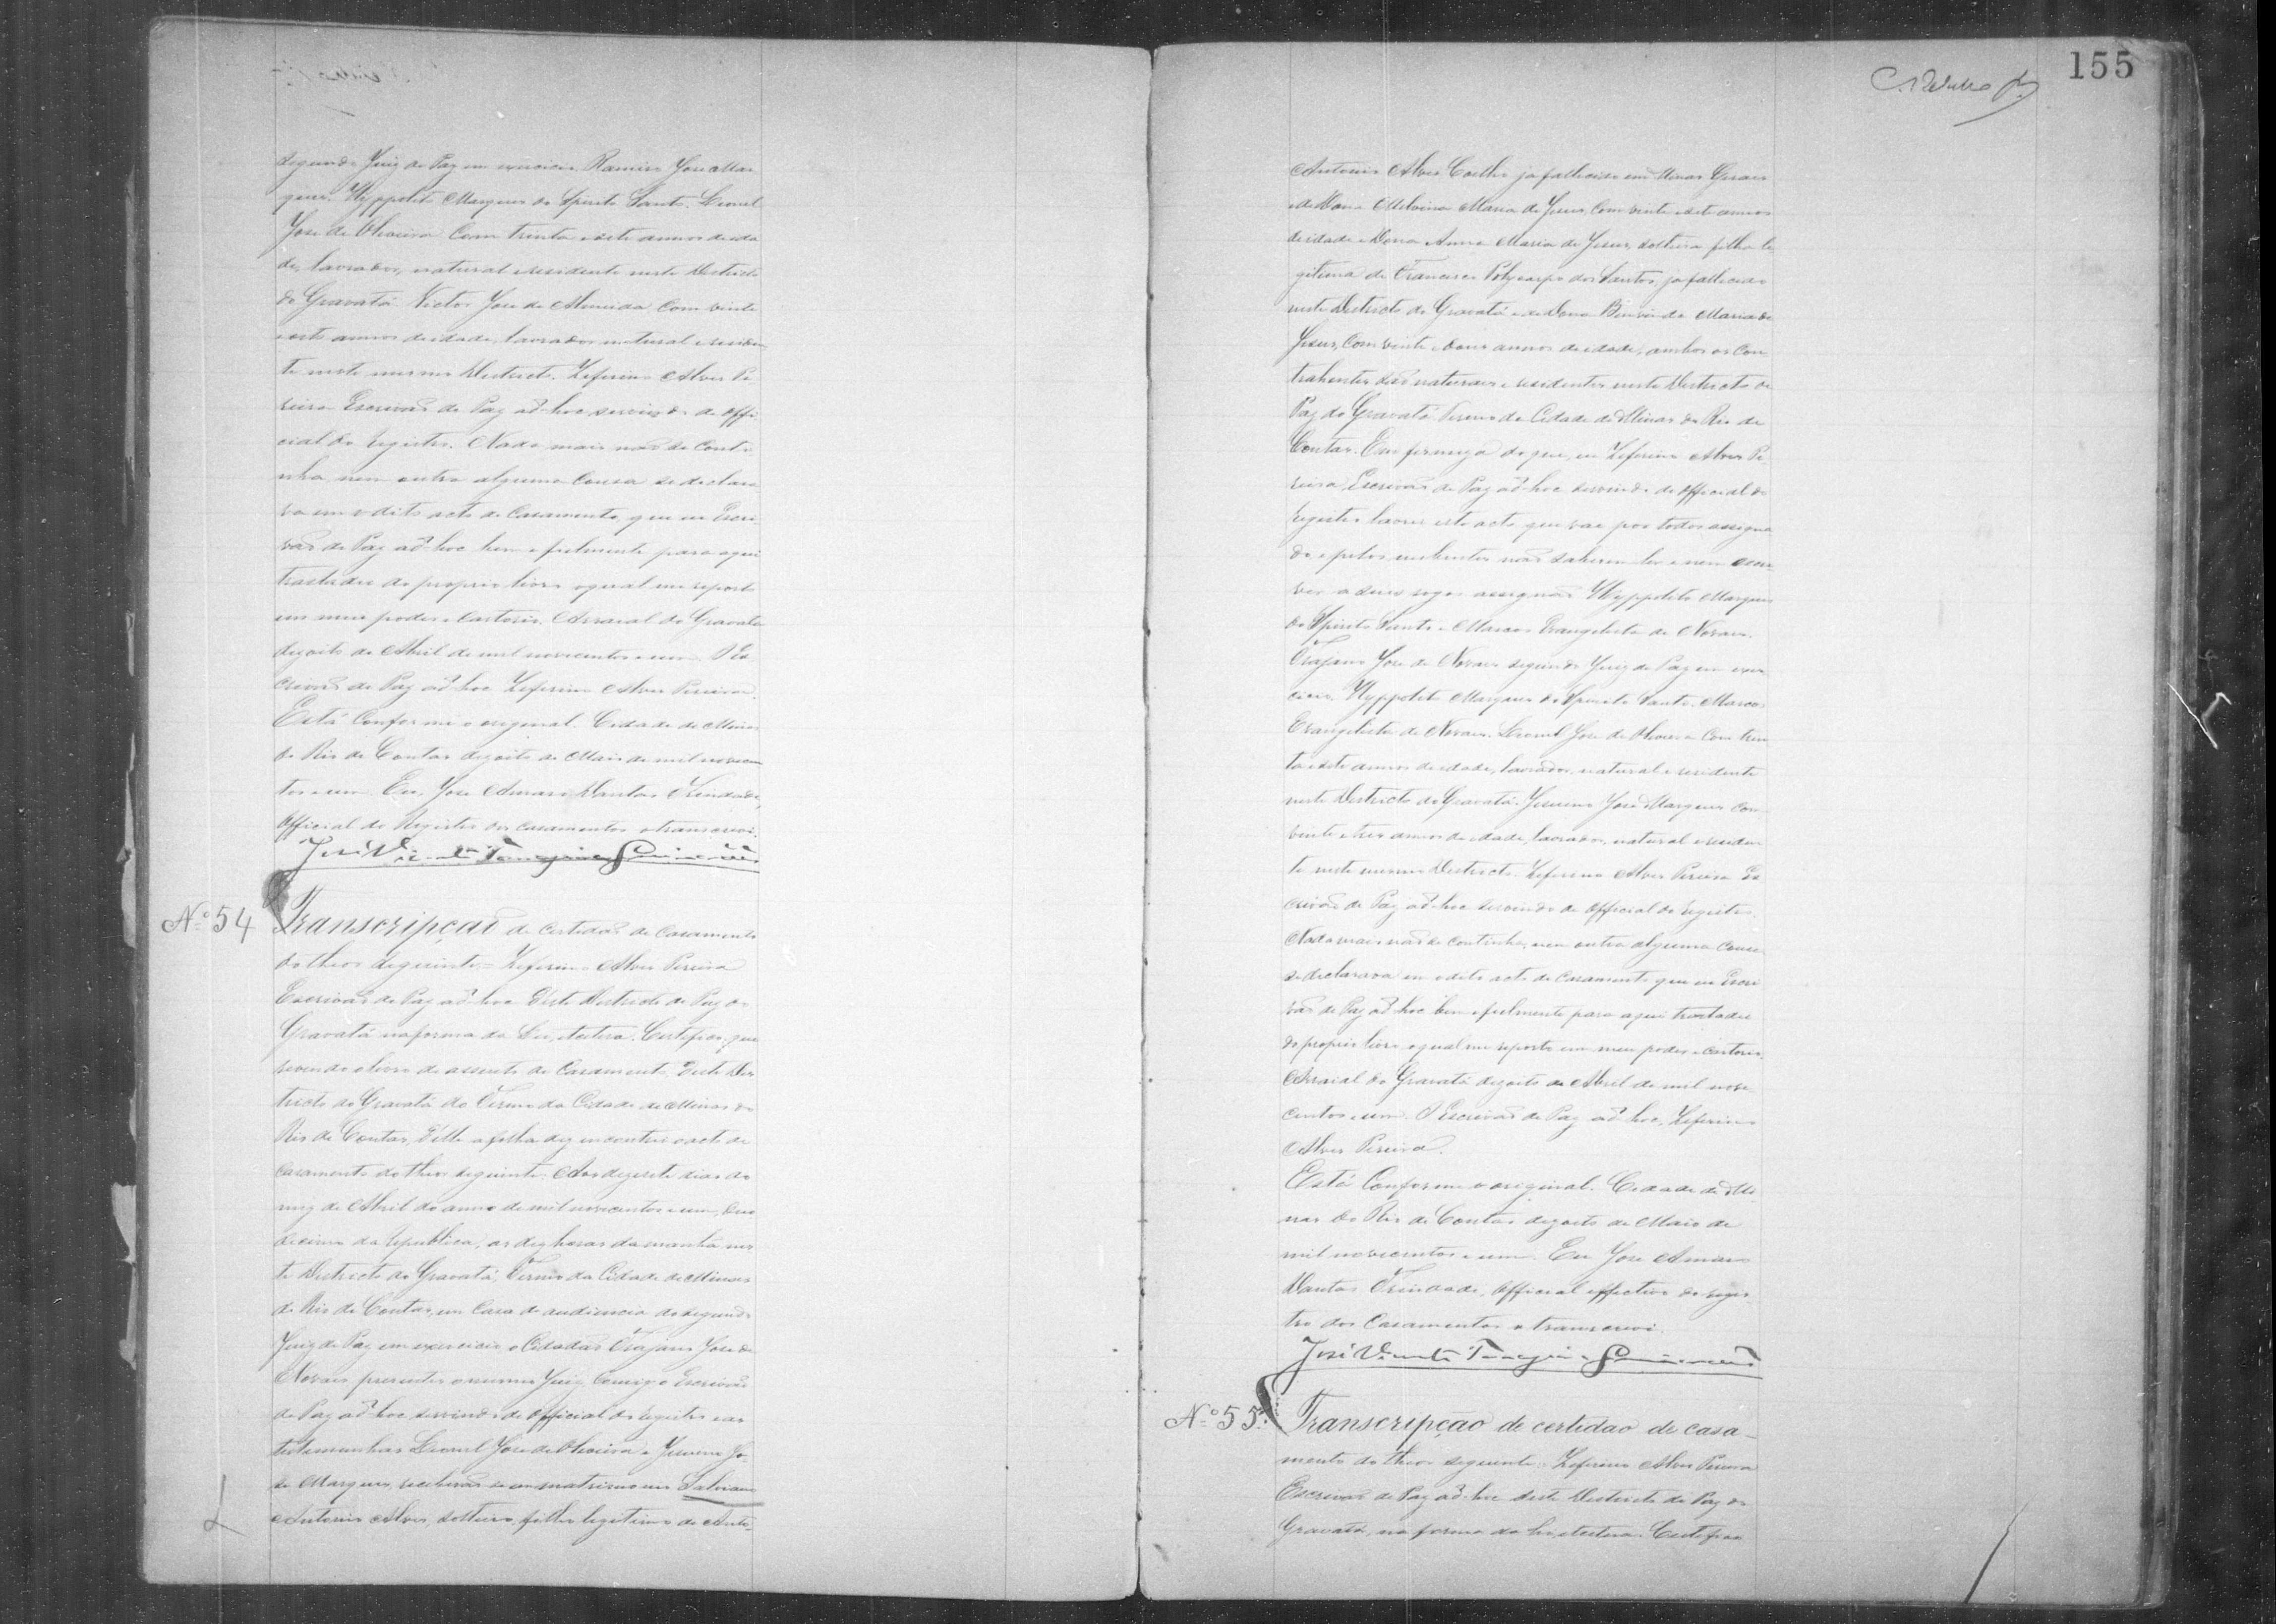 155
segundo Juiz de Paz em exercicio Ramiro Jose Mar
ques. Hyppolito Marques do Spirito Santo. Leonel
Jose de Oliveira com trinta e sete annos de ida
de, lavrador, natural e residente neste Districto
do Gravatá Victor Jose de Almeida com vinte
e oito annos de idade, lavrador natural e residen
te neste mesmo Districto. Zeferino Alves Pe
reira Escrivaõ de Paz ad-hoc servindo de offi
cial do registro. Nada mais naõ se conti
nha nem outra alguma cousa se declara
va em o dito acto de Casamento, que eu Escri
vaõ de Paz ad-hoc bem e fielmente para aqui
trasladei do proprio livro o qual me reporto
em meu poder e Cartorio. Arraial do Gravatá
dezoito de Abril de mil novecentos e um. O Es
crivaõ de Paz ad-hoc Zeferino Alves Pereira.
Está Conforme o original. Cidade de Minas
do Rio de Contas dezoito de Maio de mil novecen
tos e um. Eu, Jose Amaro Dantas Trindade,
Official do Registro dos casamentos o transcrevi.
José Vicente
Nº 54 Transcripçaõ de certidaõ de Casamento
do theor seguinte:- Zeferino Alves Pereira
Escrivaõ de Paz ad-hoc d'este Districto de Paz do
Gravatá na forma da Lei, etcetera. Certifico que
revendo o livro de assento de Casamento d'este Dis
tricto do Gravatá do Termo da Cidade de Minas do
Rio de Contas, d'elle a folha dez encontrei o acto de
casamento do theor seguinte: Aos dezesete dias do
mez de Abril do anno de mil novecentos e um, duo
decimo da republica, as dez horas da manhã nes
te Districto do Gravatá, Termo da Cidade de Minas
do Rio de Contas, em Casa de audiencia do segundo
Juiz de Paz em exercicio o Cidadaõ Trajano Jose de
Novais presentes o mesmo Juiz, Comigo Escrivaõ
de Paz ad-hoc servindo de official do registro e as
testemunhas Leonel Jose de Oliveira e Jesuino Jo-
se Marques, receberaõ-se em matrimonio Salviano
Antonio Alves, solteiro, filho legitimo de Anto-
Antonio Alves Coelho ja fallecido em Minas Geraes
e de Dona Melvina Maria de Jesus, com vinte e sete annos
de idade e Dona Anna Maria de Jesus, solteira filha le
gitima de Francisco Polycarpo dos Santos, ja fallecido
neste Districto do Gravatá e de Dona Bemvinda Maria de
Jesus, com vinte e dous annos de idade, ambos os Con
trahentes saõ naturaes e residentes neste Districto de
Paz do Gravatá Termo da Cidade de Minas do Rio de
Contas. Em firmeza do que, eu Zeferino Alves Pe
reira, Escrivaõ de Paz ad-hoc servindo de official do
registro lavrei este acto que vae por todos assigna
do e pelos nubentes naõ saberem ler e nem escre
ver a seus rogos assignaõ Hyppolito Marques
do Spirito Santo e Marcos Evangelista de Novaes.
Trajano Jose de Novaes segundo Juiz de Paz em exer
cicio. Hyppolito Marques do Spirito Santo. Marcos
Evangelista de Novaes. Leonel Jose de Oliveira com trin
ta e sete annos de idade, lavrador, natural e residente
neste Districto do Gravatá. Jesuino José Marques com
vinte e tres annos de idade, lavrador, natural e residen
te neste mesmo Districto. Zeferino Alves Pereira Es
crivaõ de Paz ad-hoc servindo de official do registro.
Nada mais naõ se continha, nem outra alguma cousa
se declarava em o dito acto de Casamento que eu Escri
vaõ de Paz ad-hoc bem e fielmente para aqui trasladei
do proprio livro o qual me reporto em meu poder e cartorio.
Arraial do Gravatá dezoito de Abril de mil nove
centos e um. O Escrivaõ de Paz ad-hoc, Zeferino
Alves Pereira.
Está Conforme o original. Cidade de Mi
nas do Rio de Contas dezoito de Maio de
mil novecentos e um. Eu Jose Amaro
Dantas Trindade, official effectivo do regis
tro dos Casamentos o transcrevi.
José Vicente
Nº 55. Transcripção de certidão de casa-
mento do theor seguinte:- Zeferino Alves Pereira
Escrivaõ de Paz ad-hoc deste Districto de Paz do
Gravatá, na forma da lei, etcetera. Certifico